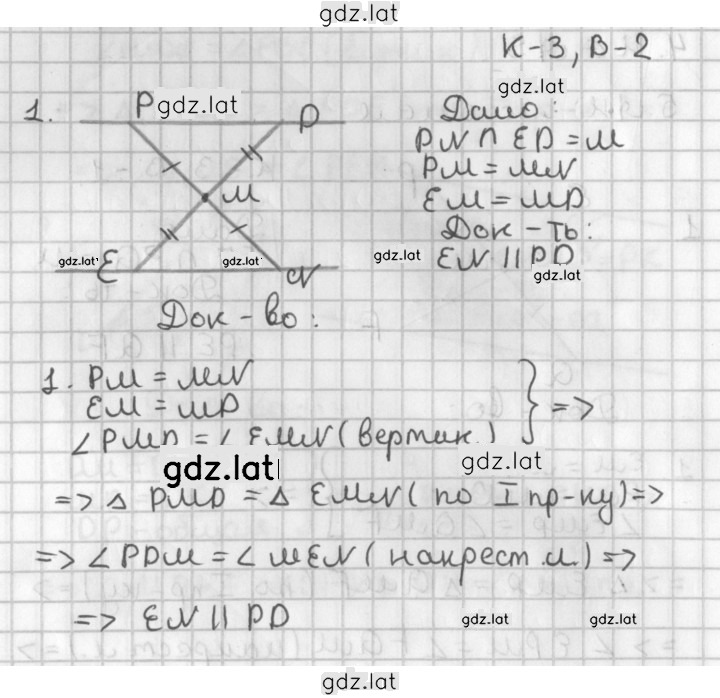 gdz.lat
К-3, В-2
1.
P gdz.lat D
M
gdz.lat E gdz.lat N
Дано: gdz.lat
PN ∩ ED = M
PM = MN
EM = MD
Док-ть:
gdz.lat EN || PD
gdz.lat
Док-во:
1. PM = MN
EM = MD
∠PMD = ∠EMN (вертик.) } =>
gdz.lat gdz.lat
=> Δ PMD = Δ EMN (по I пр-ку) =>
=> ∠PDM = ∠MEN (накрест.л.) =>
=> EN || PD gdz.lat gdz.lat
gdz.lat